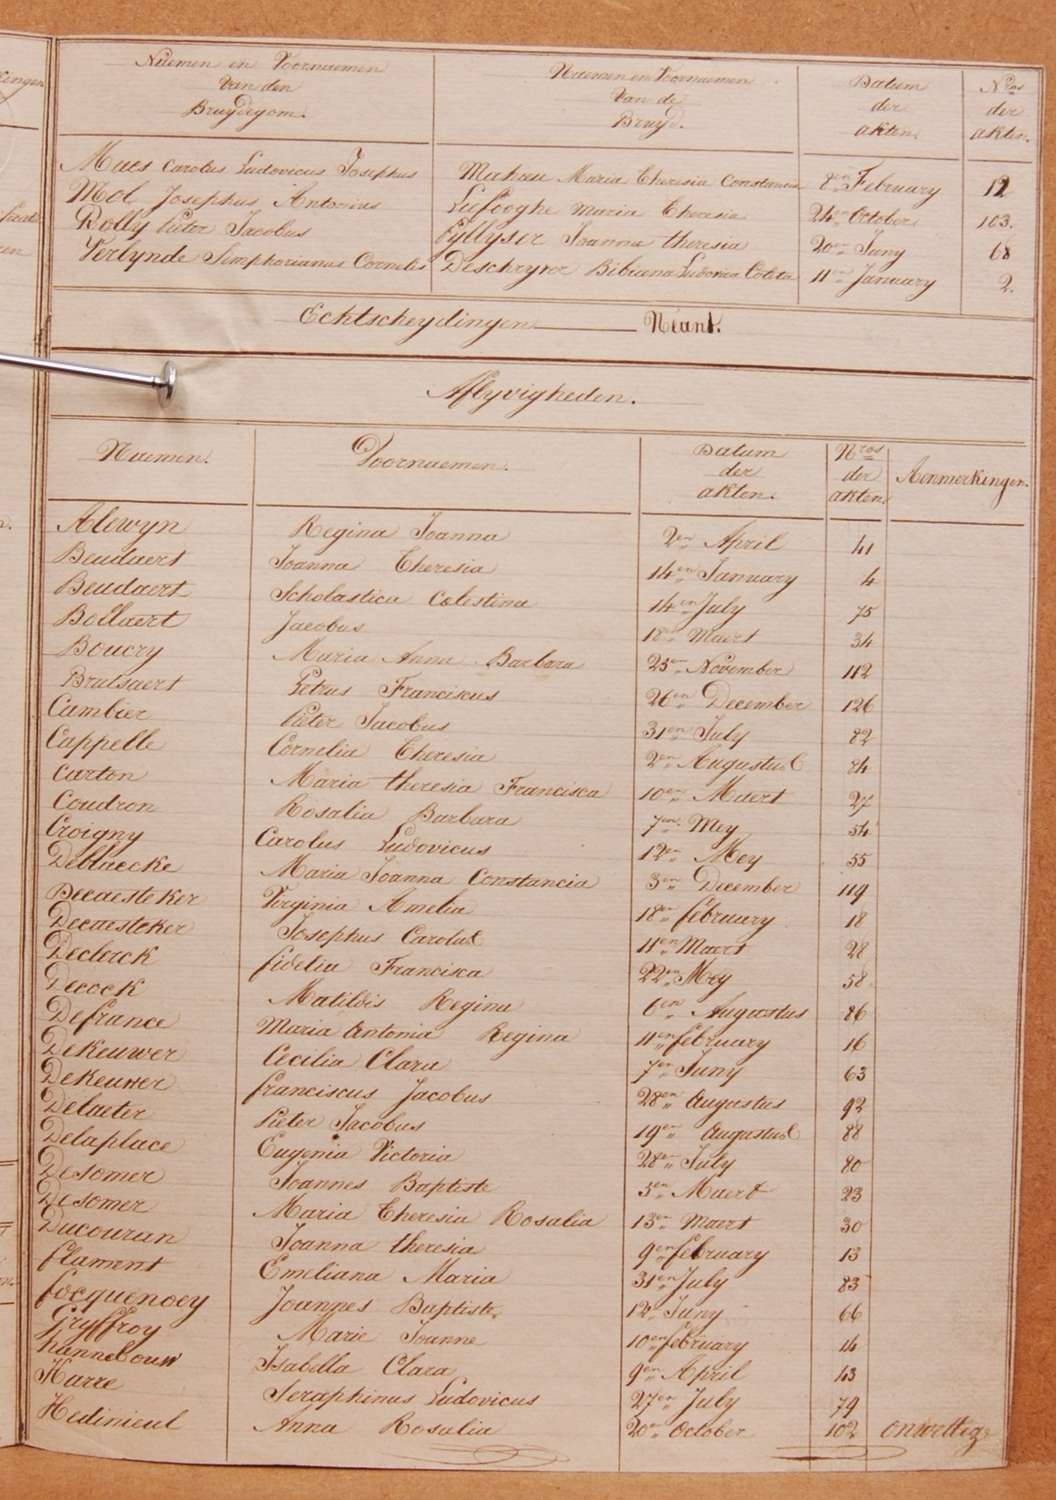 Naemen en Voornaemen Van den Bruydegom.
Naemen en Voornaemen Van de Bruyd.
Datum der akten.
Nros der akten.
Maes Carolus Ludovicus Josephus Mahieu Maria Theresia Constancia 8en February 12
Mol Josephus Antonius Liefooghe Maria Theresia 24en October 103.
Rolly Pieter Jacobus Pyllyser Joanna Theresia 20en Juny 68
Verlynde Simphorianus Cornelis Deschryver Bibiana Ludovica Coleta 11en January 2.
Echtscheydingen Néant.
Aflyvigheden.
Naemen. Voornaemen. Datum der akten. Nros der akten. Aenmerkingen.
Alewyn Regina Joanna 2en April 41
Beudaert Joanna Theresia 14en January 4
Beudaert Scholastica Celestina 14en July 75
Bollaert Jacobus 18en Maert 34
Boucry Maria Anna Barbara 25en November 112
Brutsaert Petrus Franciscus 26en December 126
Cambier Pieter Jacobus 31en July 82
Cappelle Cornelia Theresia 2en Augustus 84
Carton Maria theresia Francisca 10en Maert 27
Coudron Rosalia Barbara 7en Mey 54
Croigny Carolus Ludovicus 12en Mey 55
Deblaecke Maria Joanna Constancia 3en December 119
Decaesteker Virginia Amelia 18en february 18
Decaesteker Josephus Carolus 11en Maert 28
Declerck fidelia Francisca 22en Mey 58
Decock Matildis Regina 6en Augustus 86
Defrance Maria Antonia Regina 11en february 16
Dekeuwer Cecilia Clara 7en Juny 63
Dekeuwer franciscus Jacobus 28en Augustus 92
Delaeter Pieter Jacobus 19en Augustus 88
Delaplace Eugenia Victoria 28en July 80
Desomer Joannes Baptiste 5en Maert 23
Desomer Maria Theresia Rosalia 13en Maert 30
Ducouran Joanna theresia 9en february 13
flament Emeliana Maria 31en July 83
focquenoey Joannes Baptiste 12en Juny 66
Gryffroy Marie Joanne 10en february 14
hannebouw Isabella Clara 9en April 43
Harre Seraphinus Ludovicus 27en July 79
Hedinieul Anna Rosalia 20en October 102 onwettig